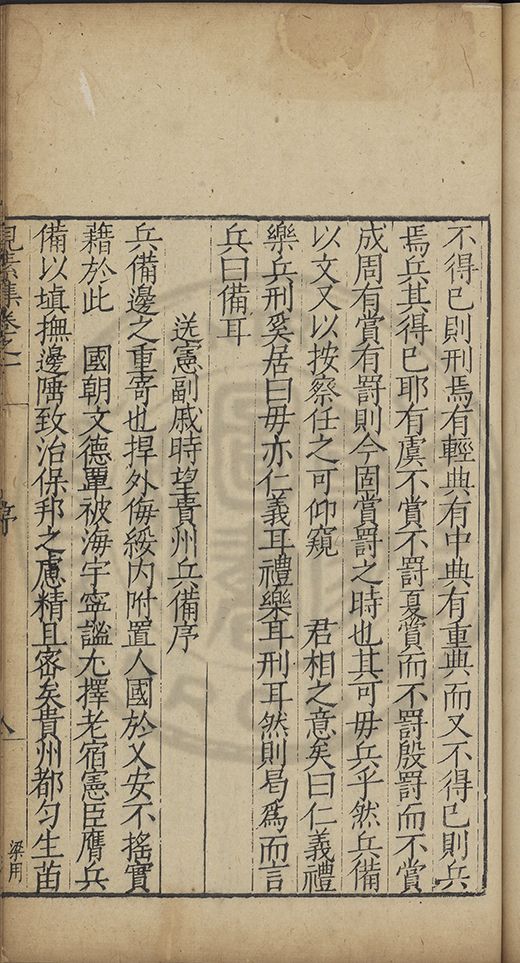 不得已則刑焉有輕典有中典有重典而又不得已則兵
焉兵其得已耶有虞不賞不罰夏賞而不罰殷罰而不賞
成周有賞有罰則今固賞罰之時也其可毋兵乎然兵備
以文又以按察任之可仰窺 君相之意矣曰仁義禮
樂兵刑奚居曰毋亦仁義耳禮樂耳刑耳然則曷爲而言
兵曰備耳
送憲副戚時望貴州兵備序
兵備邊之重寄也捍外侮綏内附置人國於乂安不搖實
藉於此 國朝文德覃被海宇寧謐尤擇老宿憲臣膺兵
備以塡撫邊陲致治保邦之慮精且密矣貴州都勻生苗
見素集卷之二 序 八
梁用